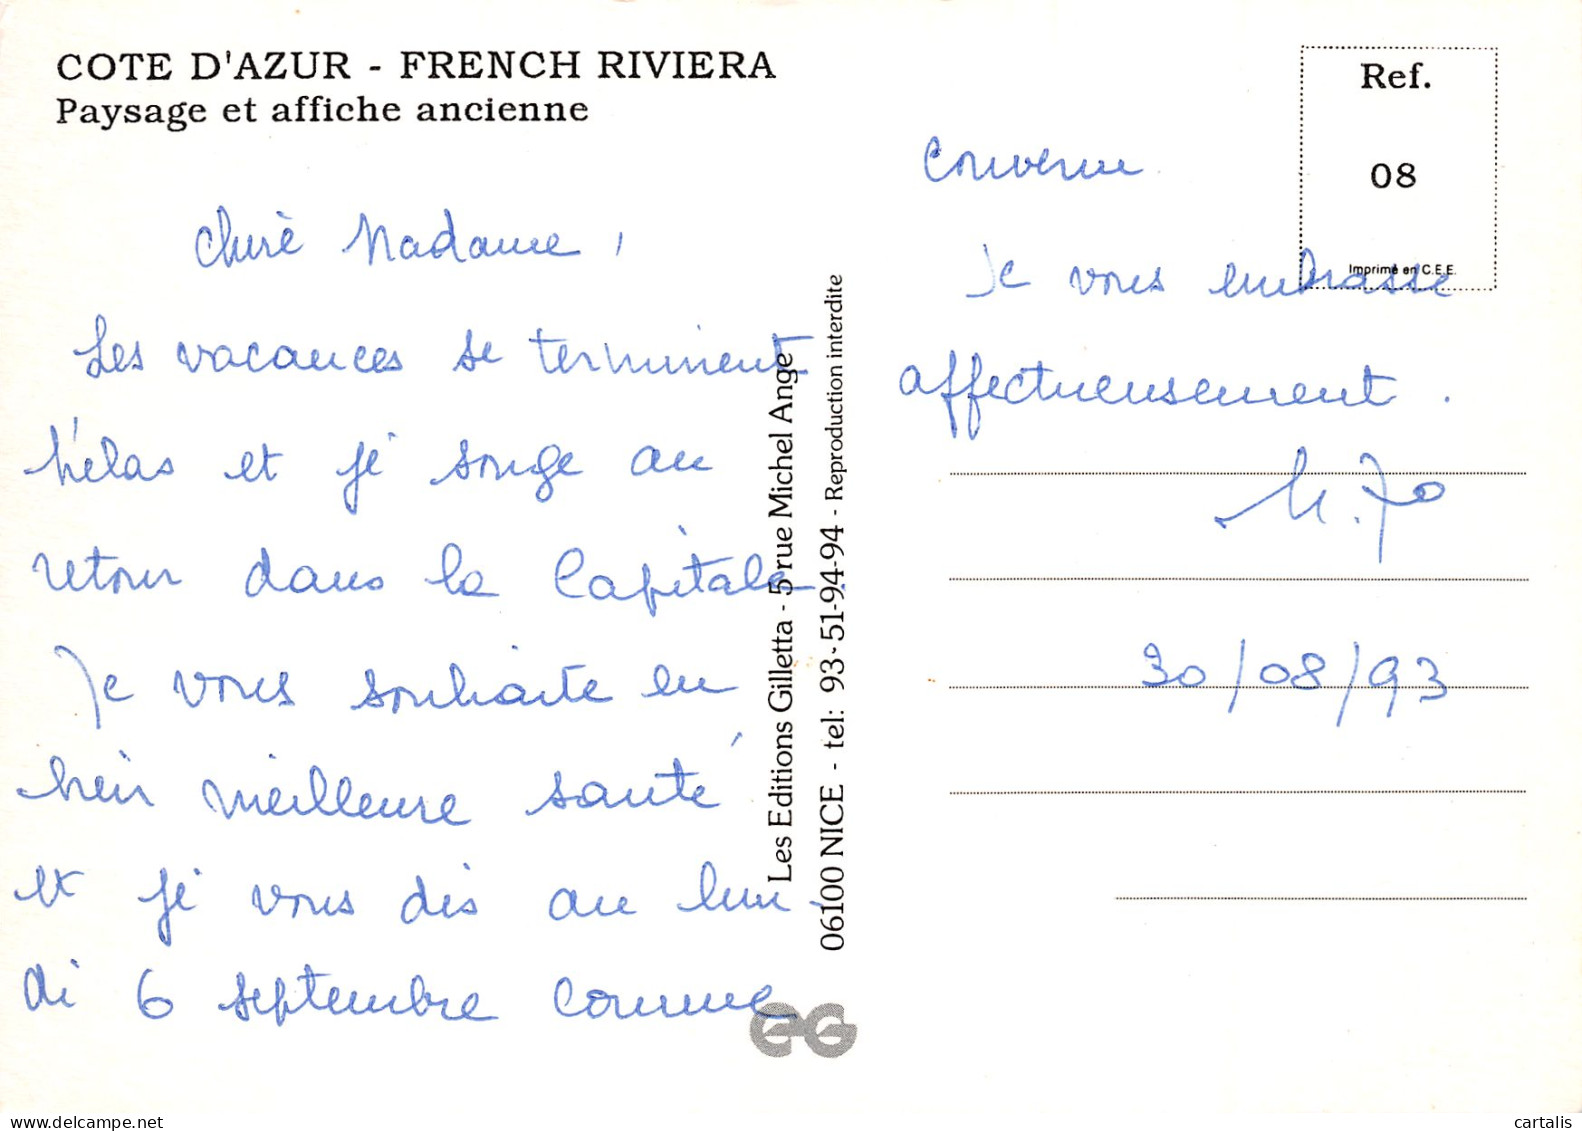 COTE D'AZUR - FRENCH RIVIERA
Paysage et affiche ancienne
Chère Madame,
Les vacances se terminent
hélas et je songe au
retour dans la Capitale.
Je vous souhaite en
bien meilleure santé
et je vous dis au lun-
di 6 septembre comme
Les Editions Gilletta - 5 rue Michel Ange
06100 NICE - tel: 93-51-94-94 - Reproduction interdite
EG
Ref.
08
Imprimé en C.E.E.
convenu
Je vous embrasse
affectueusement.
M. Jo
30/08/93
cartalis
www.delcampe.net